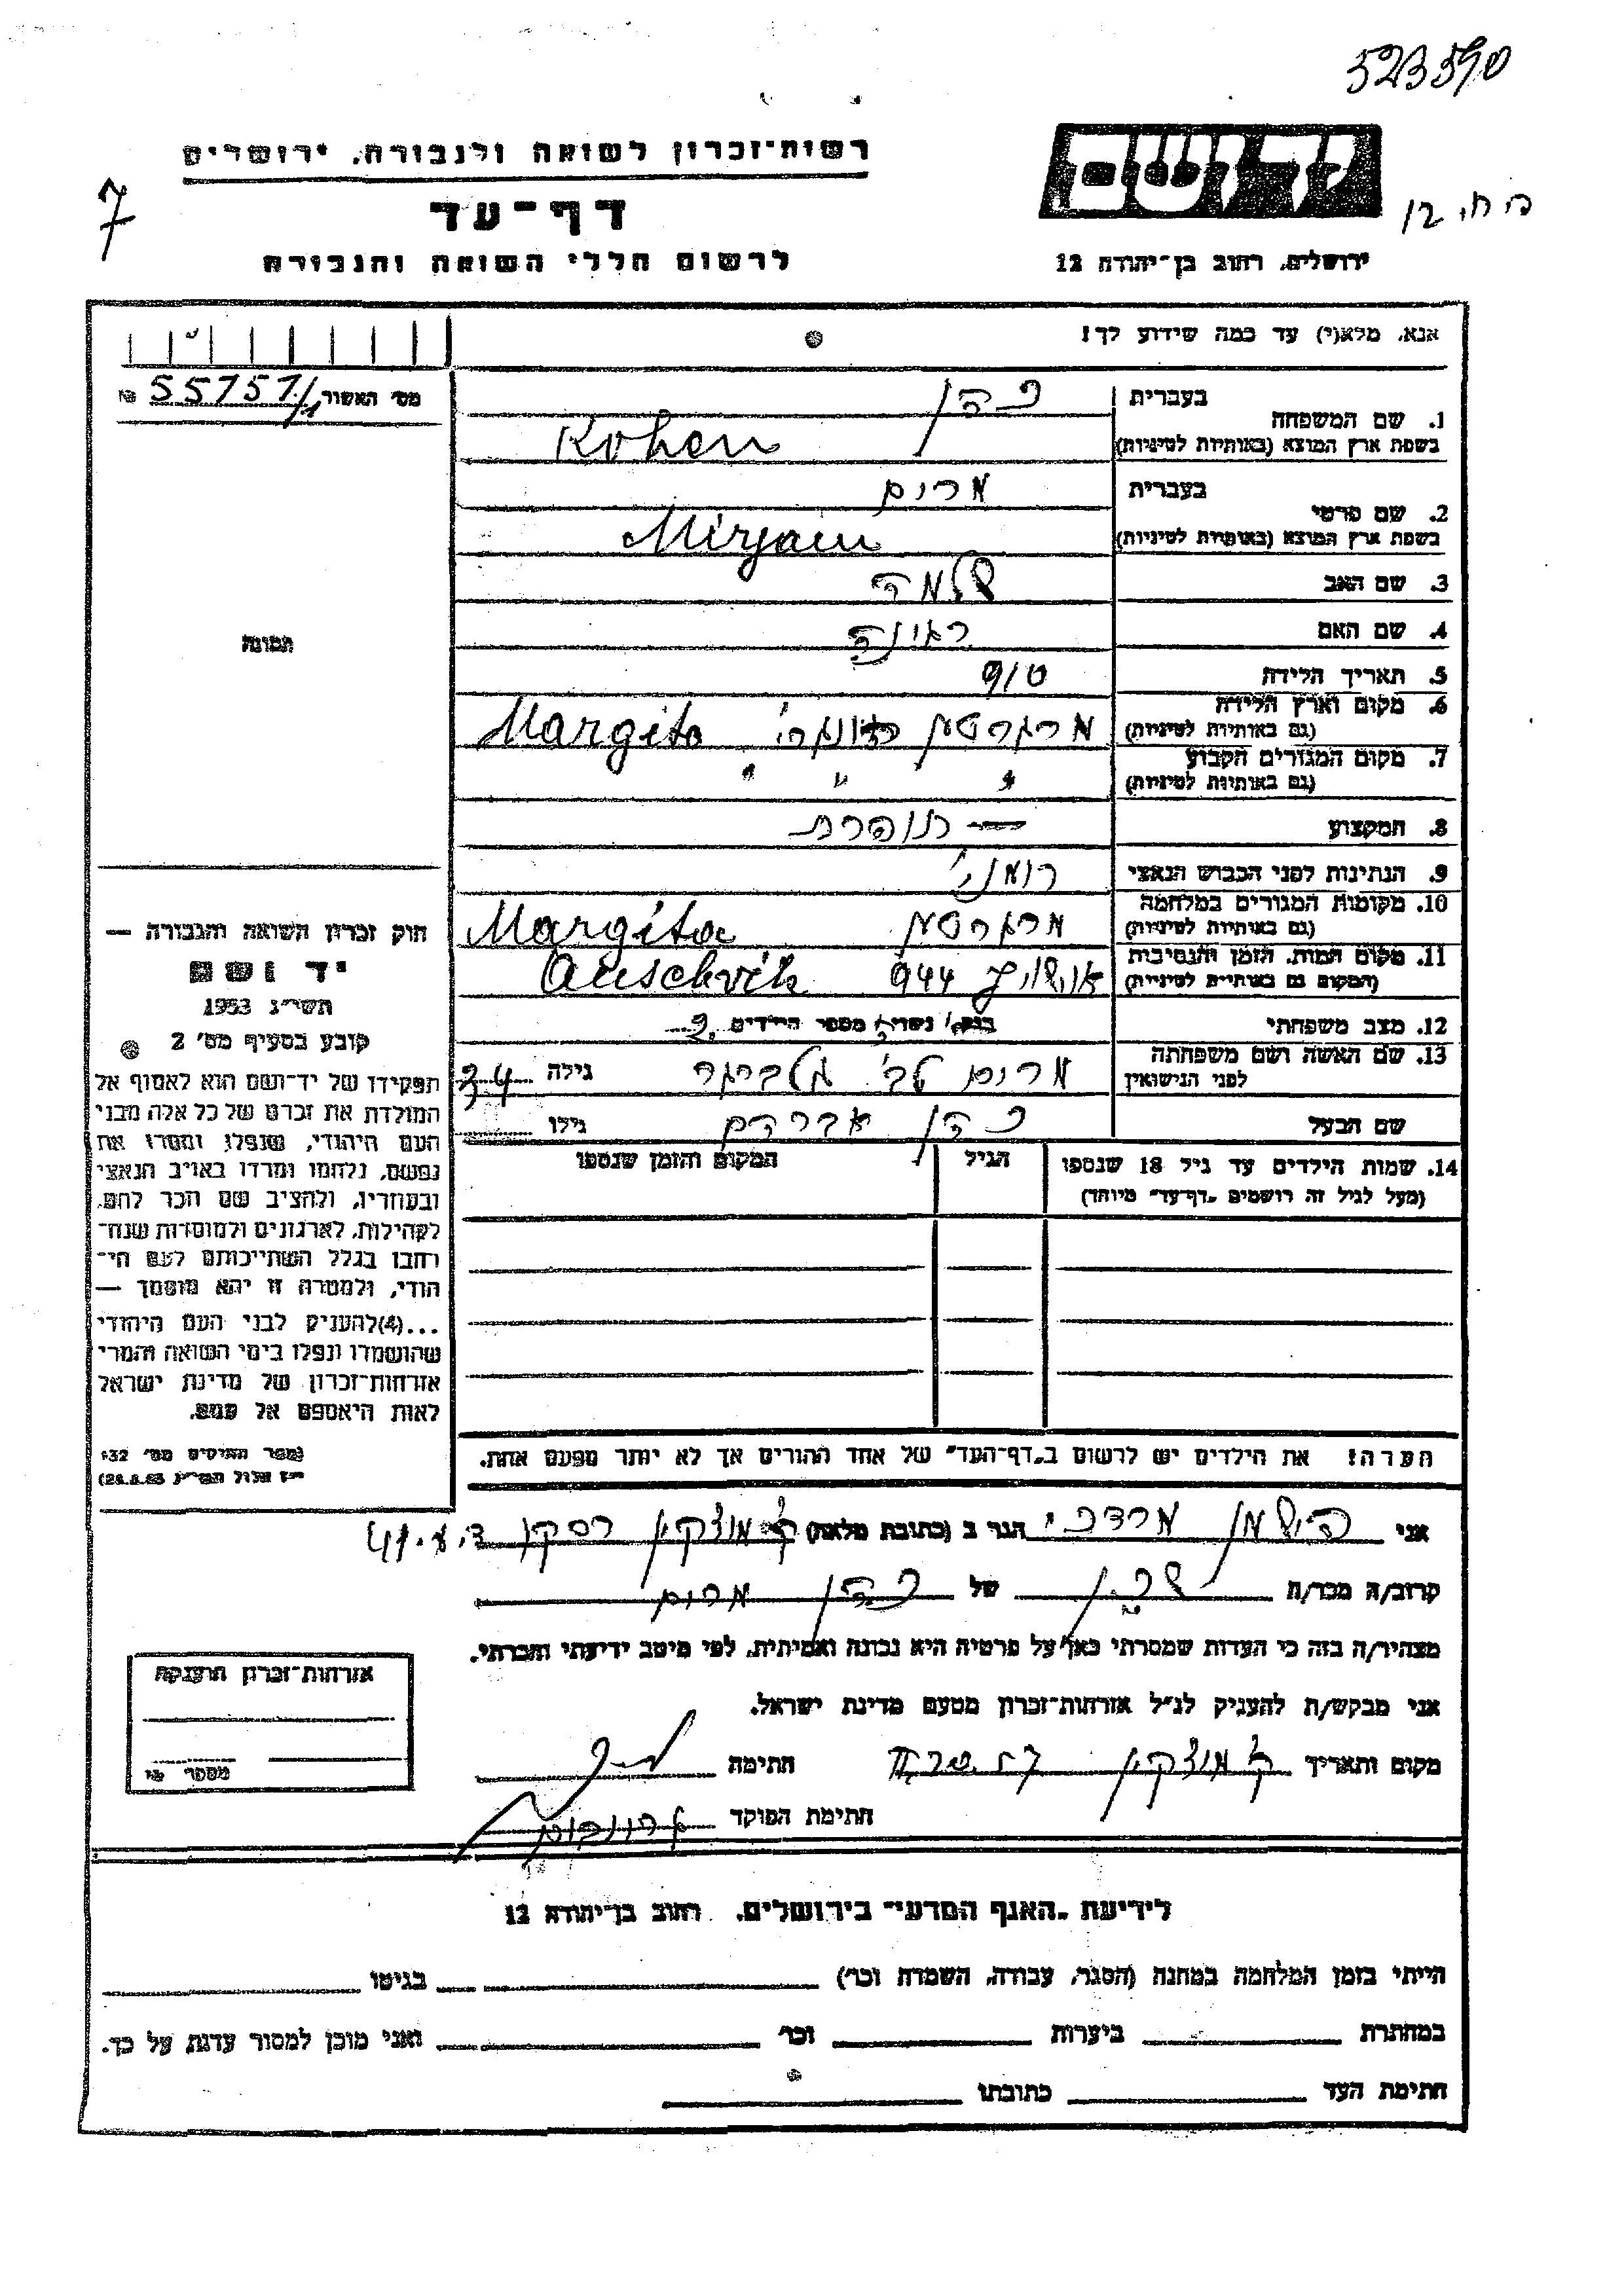 523590
רשות־זכרון לשואה ולגבורה, ירושלים
דף־עד
לרשום חללי השואה והגבורה
7
ירושלים, רחוב בן־יהודה 12
אנא, מלא(י) עד כמה שידוע לך!
מס׳ האשור № 55757/1
1. שם המשפחה
בעברית כהן
בשפת ארץ המוצא (באותיות לטיניות) Kohen
2. שם פרטי
בעברית מרים
בשפת ארץ המוצא (באותיות לטיניות) Mirjam
3. שם האב שלמה
4. שם האם ראינה
5. תאריך הלידה 910
6. מקום וארץ הלידה
(גם באותיות לטיניות) Margita
7. מקום המגורים הקבוע
(גם באותיות לטיניות) " " "
8. המקצוע — תופרת
9. הנתינות לפני הכבוש הנאצי רומני
10. מקומות המגורים במלחמה
(גם באותיות לטיניות) מרגרטע Margita
11. מקום המות, הזמן והנסיבות
(המקום גם באותיות לטיניות) אושויץ 944 Auschvitz
12. מצב משפחתי נשוי/ה מספר הילדים 2
13. שם האשה ושם משפחתה
לפני הנישואין מרים לבי גולברגר גילה 34
שם הבעל כהן אברהם גילו
14. שמות הילדים עד גיל 18 שנספו
(מעל לגיל זה רושמים „דף־עד״ מיוחד)
הגיל
המקום והזמן שנספו
הערה: את הילדים יש לרשום ב„דף־העד״ של אחד ההורים אך לא יותר מפעם אחת.
תמונה
חוק זכרון השואה והגבורה —
יד ושם
תשי״ג 1953
קובע בסעיף מס׳ 2
תפקידו של יד־ושם הוא לאסוף אל
המולדת את זכרם של כל אלה מבני
העם היהודי, שנפלו ומסרו את
נפשם, נלחמו ומרדו באויב הנאצי
ובעוזריו, ולהציב שם וזכר להם,
לקהילות, לארגונים ולמוסדות שנח־
רבו בגלל השתייכותם לעם הי־
הודי, ולמטרה זו יהא מוסמך —
...(4) להעניק לבני העם היהודי
שהושמדו ונפלו בימי השואה והמרי
אזרחות־זכרון של מדינת ישראל
לאות היאספם אל עמם.
(ספר החוקים מס׳ 132
י״ז אלול תשי״ג 28.8.53)
אני הישמן מרדכי הגר ב (כתובת מלאה) ק׳ מוצקין רסקו
קרוב/ה מכר/ה שכן של כהן מרים
מצהיר/ה בזה כי העדות שמסרתי כאן על פרטיה היא נכונה ואמיתית, לפי מיטב ידיעתי והכרתי.
אני מבקש/ת להעניק לנ״ל אזרחות־זכרון מטעם מדינת ישראל.
מקום ותאריך ק׳ מוצקין חתימה
חתימת הפוקד
אזרחות־זכרון הוענקה
מספר
לידיעת „האגף המדעי״ בירושלים, רחוב בן־יהודה 12
הייתי בזמן המלחמה במחנה (הסגר, עבודה, השמדה וכו׳) בגיטו
במחתרת ביערות וכו׳ ואני מוכן למסור עדות על כך.
חתימת העד כתובתו